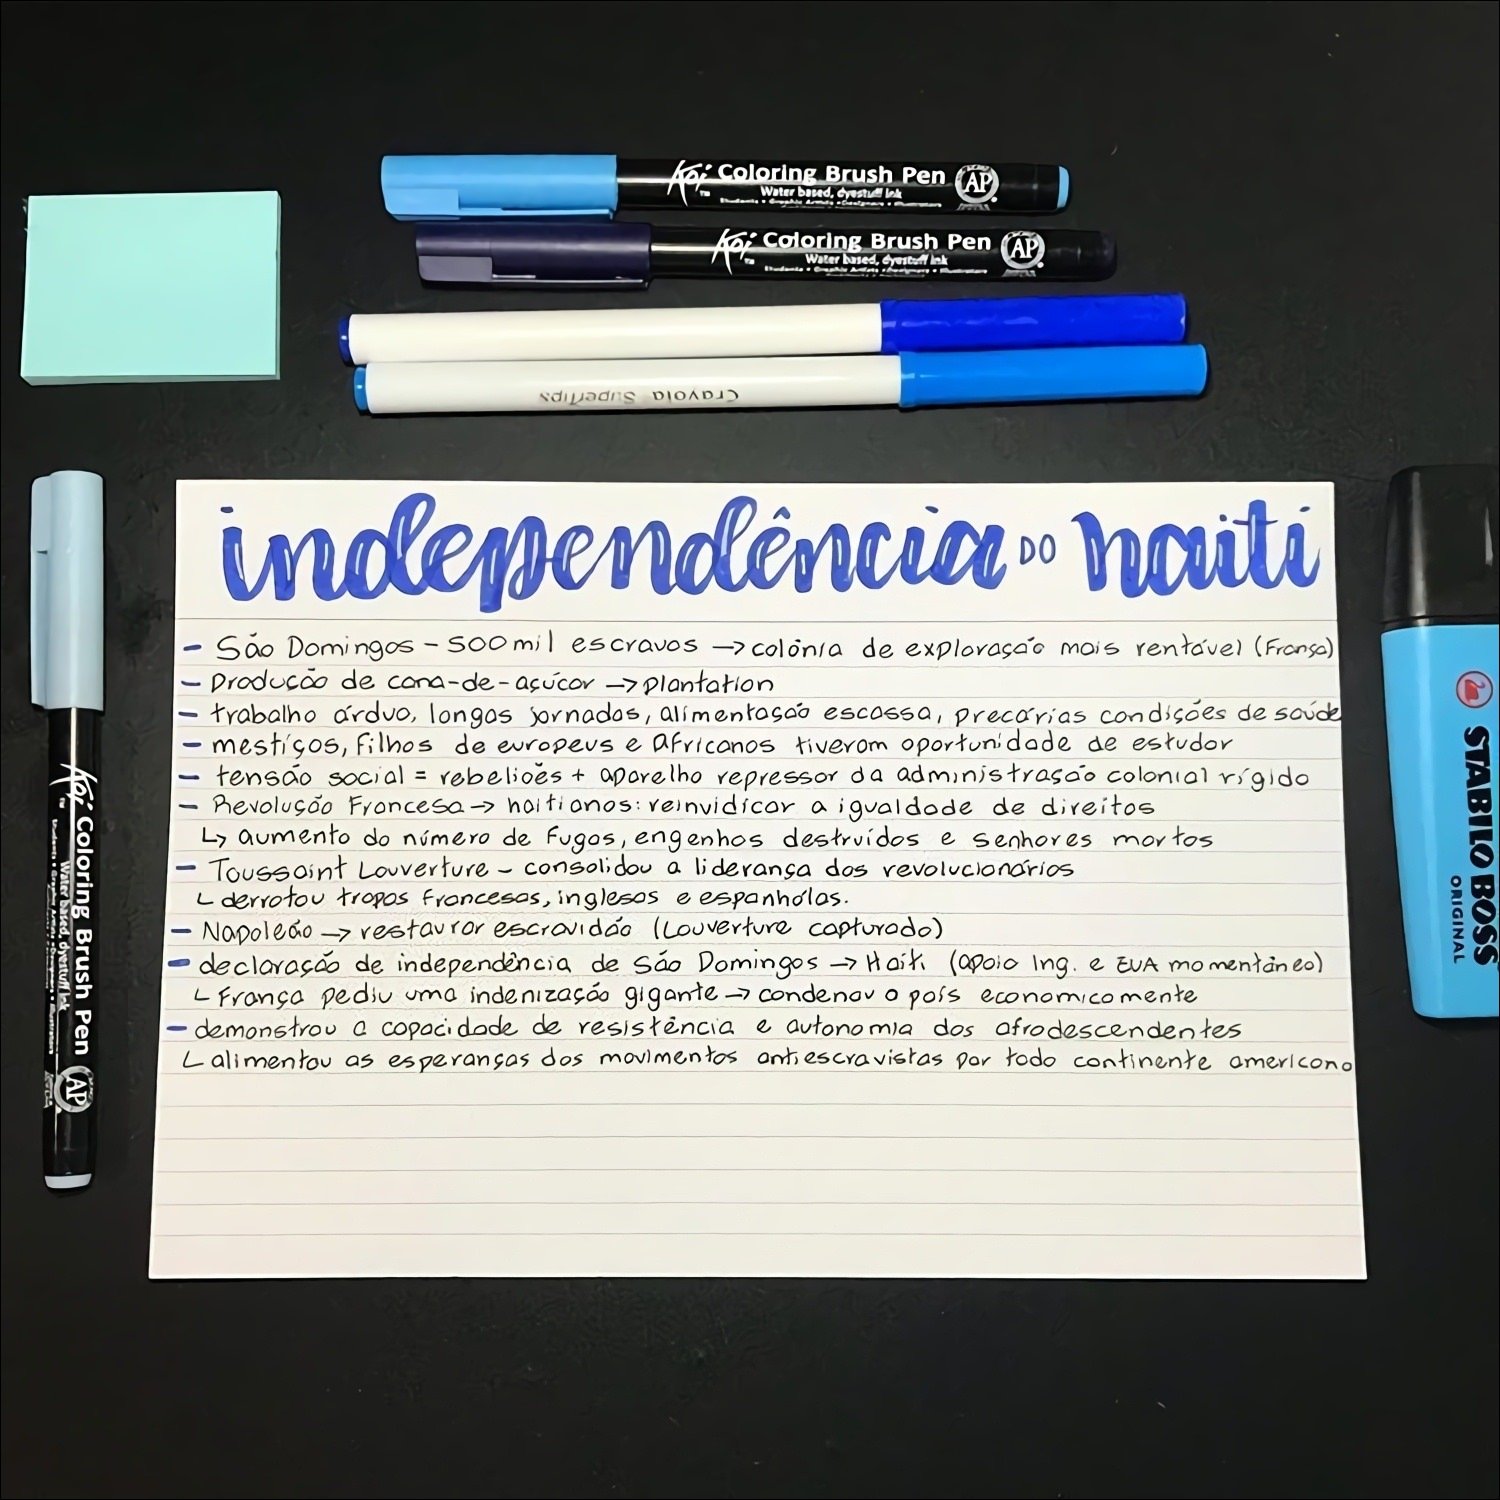 Koi Coloring Brush Pen AP
Water based, dyestuff ink
Koi Coloring Brush Pen AP
Water based, dyestuff ink
Crayola Supertips
independência DO haiti
- São Domingos - 500 mil escravos → colônia de exploração mais rentável (França)
- Produção de cana-de-açúcar → plantation
- trabalho árduo, longas jornadas, alimentação escassa, precárias condições de saúde
- mestiços, filhos de europeus e africanos tiveram oportunidade de estudar
- tensão social = rebeliões + aparelho repressor da administração colonial rígido
- Revolução Francesa → haitianos: reinvidicar a igualdade de direitos
↳ aumento do número de fugas, engenhos destruídos e senhores mortos
- Toussaint Louverture - consolidou a liderança dos revolucionários
↳ derrotou tropas francesas, inglesas e espanhólas.
- Napoleão → restaurar escravidão (Louverture capturado)
- declaração de independência de São Domingos → Haiti (apoio Ing. e EUA momentâneo)
↳ França pediu uma indenização gigante → condenou o país economicamente
- demonstrou a capacidade de resistência e autonomia dos afrodescendentes
↳ alimentou as esperanças dos movimentos antiescravistas por todo continente americano
Koi Coloring Brush Pen AP
Water based, dyestuff ink
STABILO BOSS
ORIGINAL